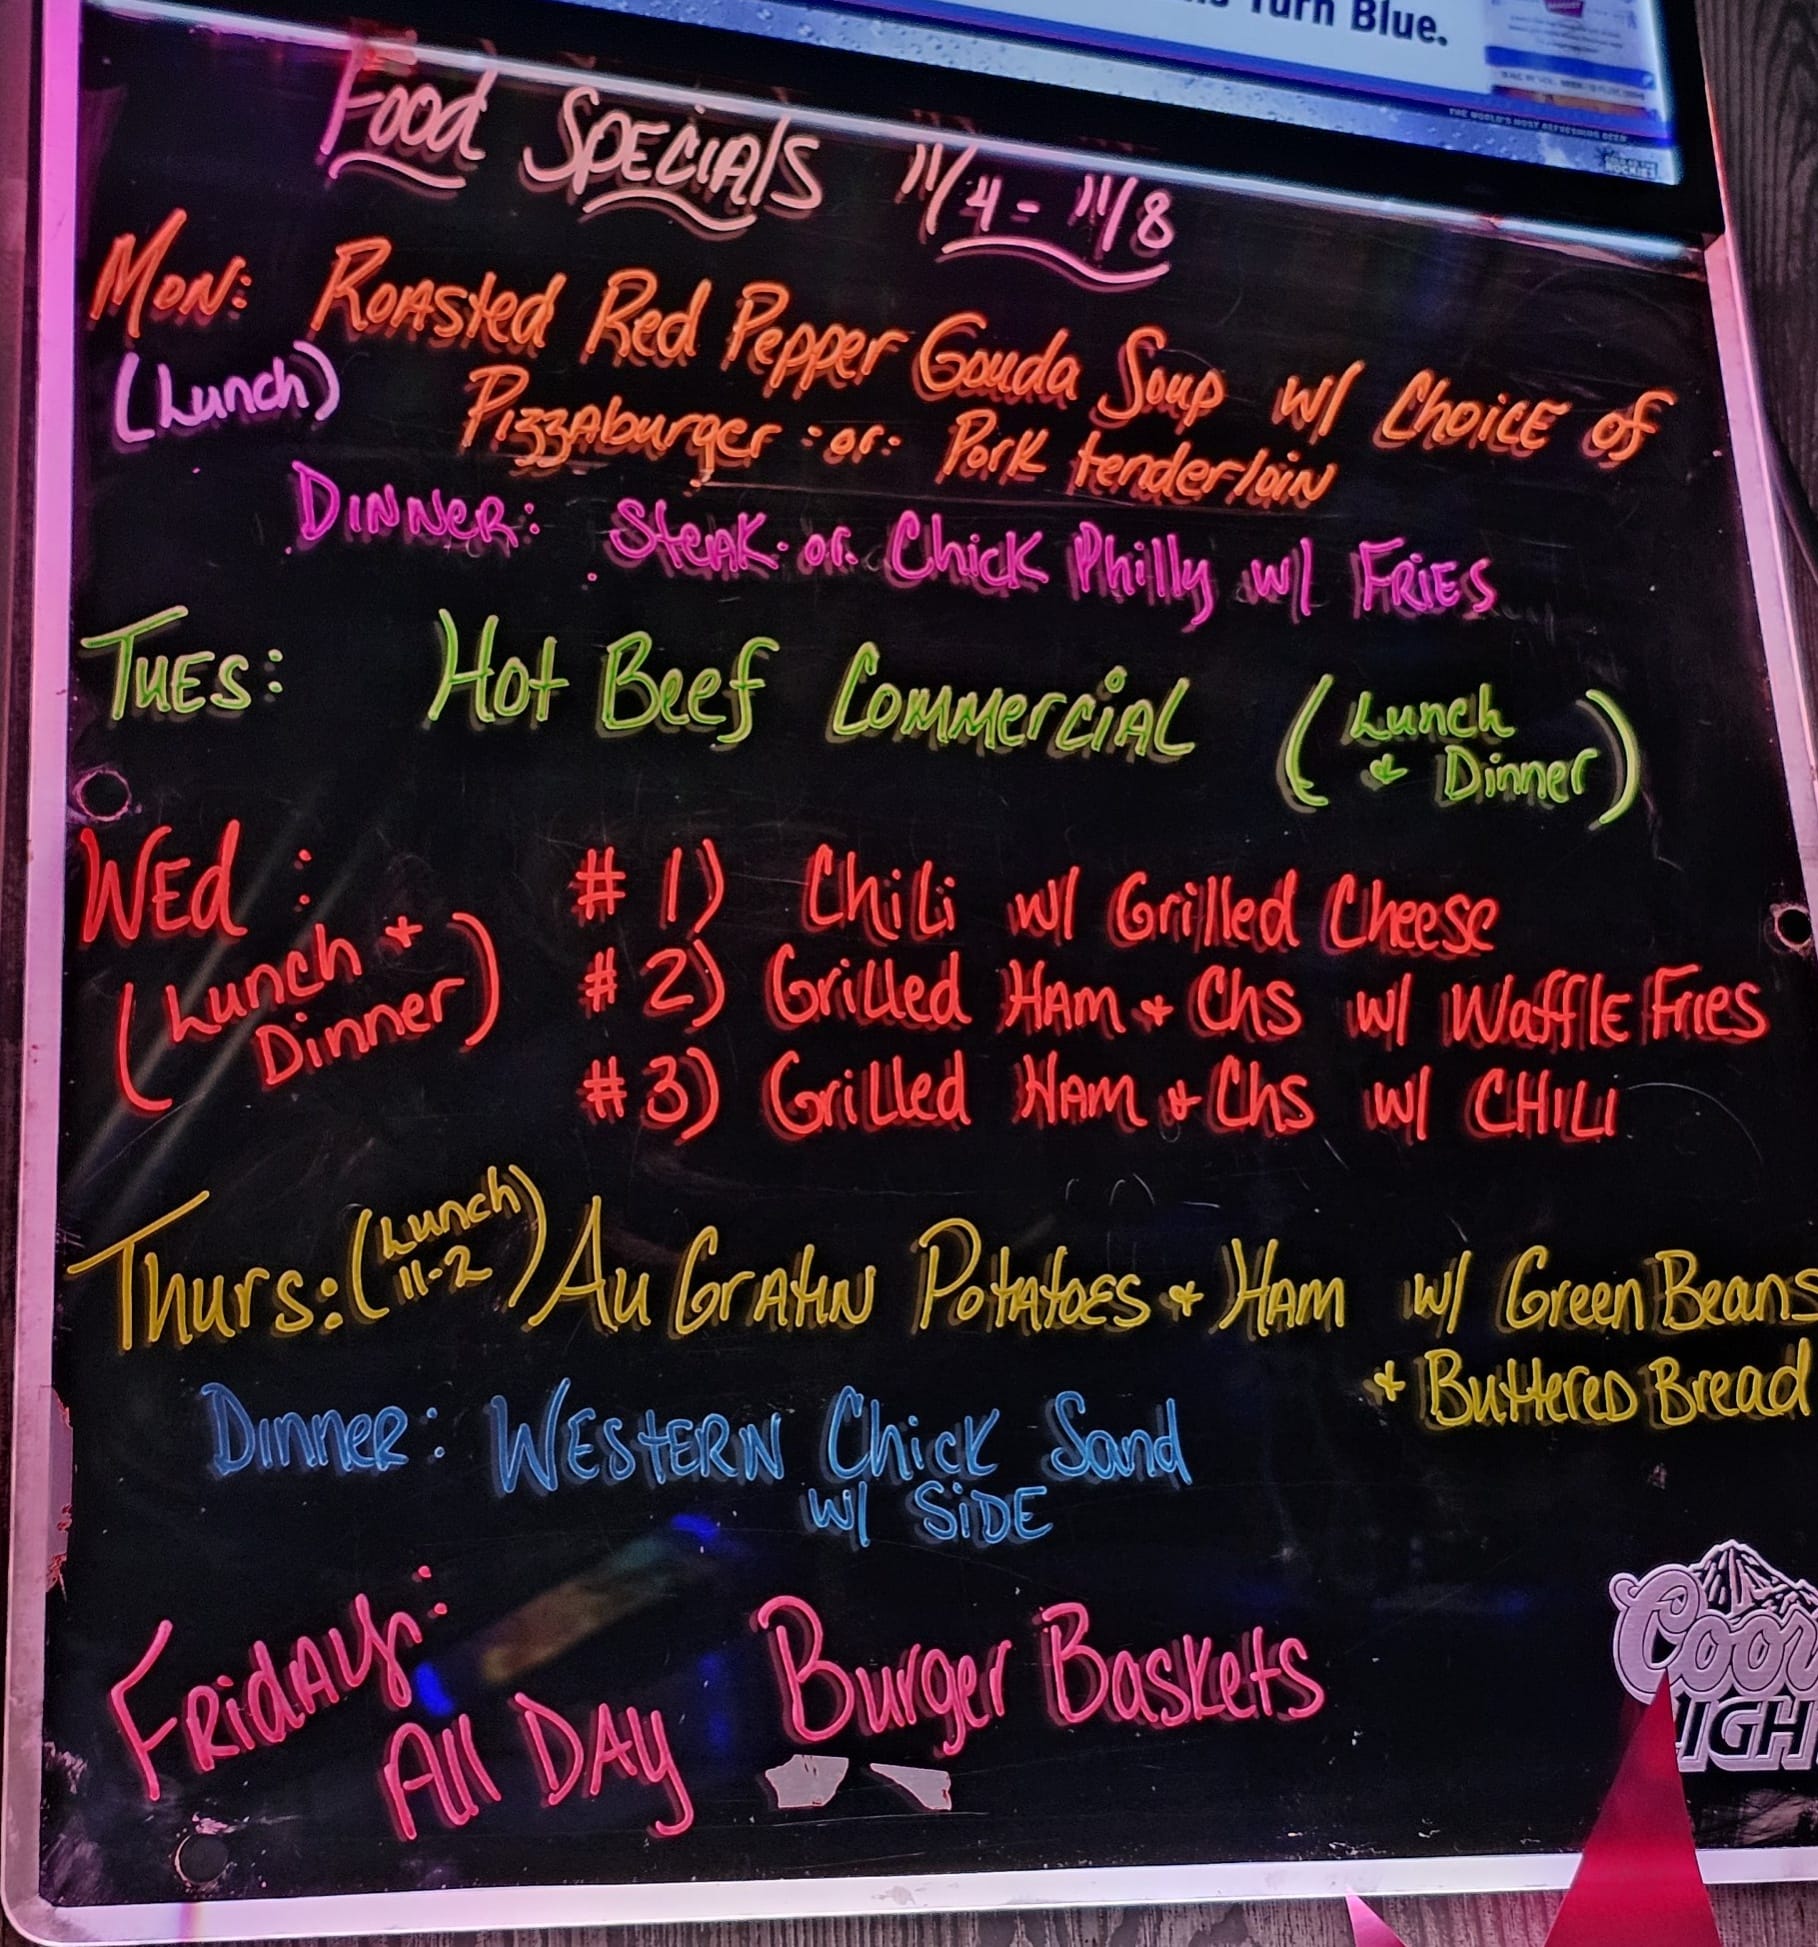 Turn Blue.
THE WORLD'S MOST REFRESHING BEER
Food Specials 11/4 - 11/8
Mon: Roasted Red Pepper Gouda Soup w/ Choice of
(Lunch) Pizzaburger -or- Pork tenderloin
Dinner: Steak or Chick Philly w/ Fries
Tues: Hot Beef Commercial (Lunch
+ Dinner)
Wed: #1) Chili w/ Grilled Cheese
(Lunch + #2) Grilled Ham + Chs w/ Waffle Fries
Dinner) #3) Grilled Ham + Chs w/ CHILI
Thurs: (Lunch 11-2) Au Gratin Potatoes + Ham w/ Green Beans
+ Buttered Bread
Dinner: Western Chick Sand
w/ Side
Friday: Burger Baskets
All Day
Coors
LIGHT